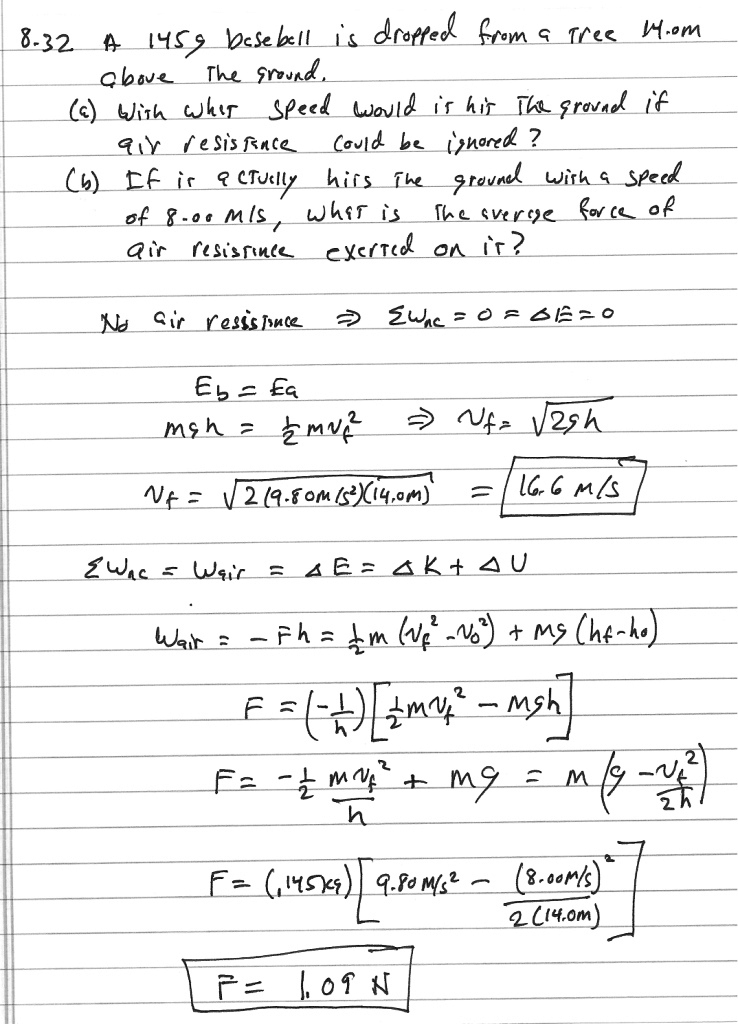 8-32 A 145g baseball is dropped from a Tree 14.0m
above The ground.
(a) With what speed would it hit The ground if
air resistance could be ignored?
(b) If it actually hits The ground with a speed
of 8.00 m/s, what is The average force of
air resistance exerted on it?
No air resistance ⇒ ΣWnc = 0 = ΔE = 0
Eb = Ea
mgh = ½mvf² ⇒ vf = √2gh
vf = √2(9.80m/s²)(14.0m) = 16.6 m/s
ΣWnc = Wair = ΔE = ΔK + ΔU
Wair = -Fh = ½m(vf² - v0²) + mg(hf-h0)
F = (-1/h)[½mvf² - mgh]
F = -½ mvf²/h + mg = m(g - vf²/2h)
F = (.145kg)[9.80 m/s² - (8.00m/s)²/2(14.0m)]
F = 1.09 N